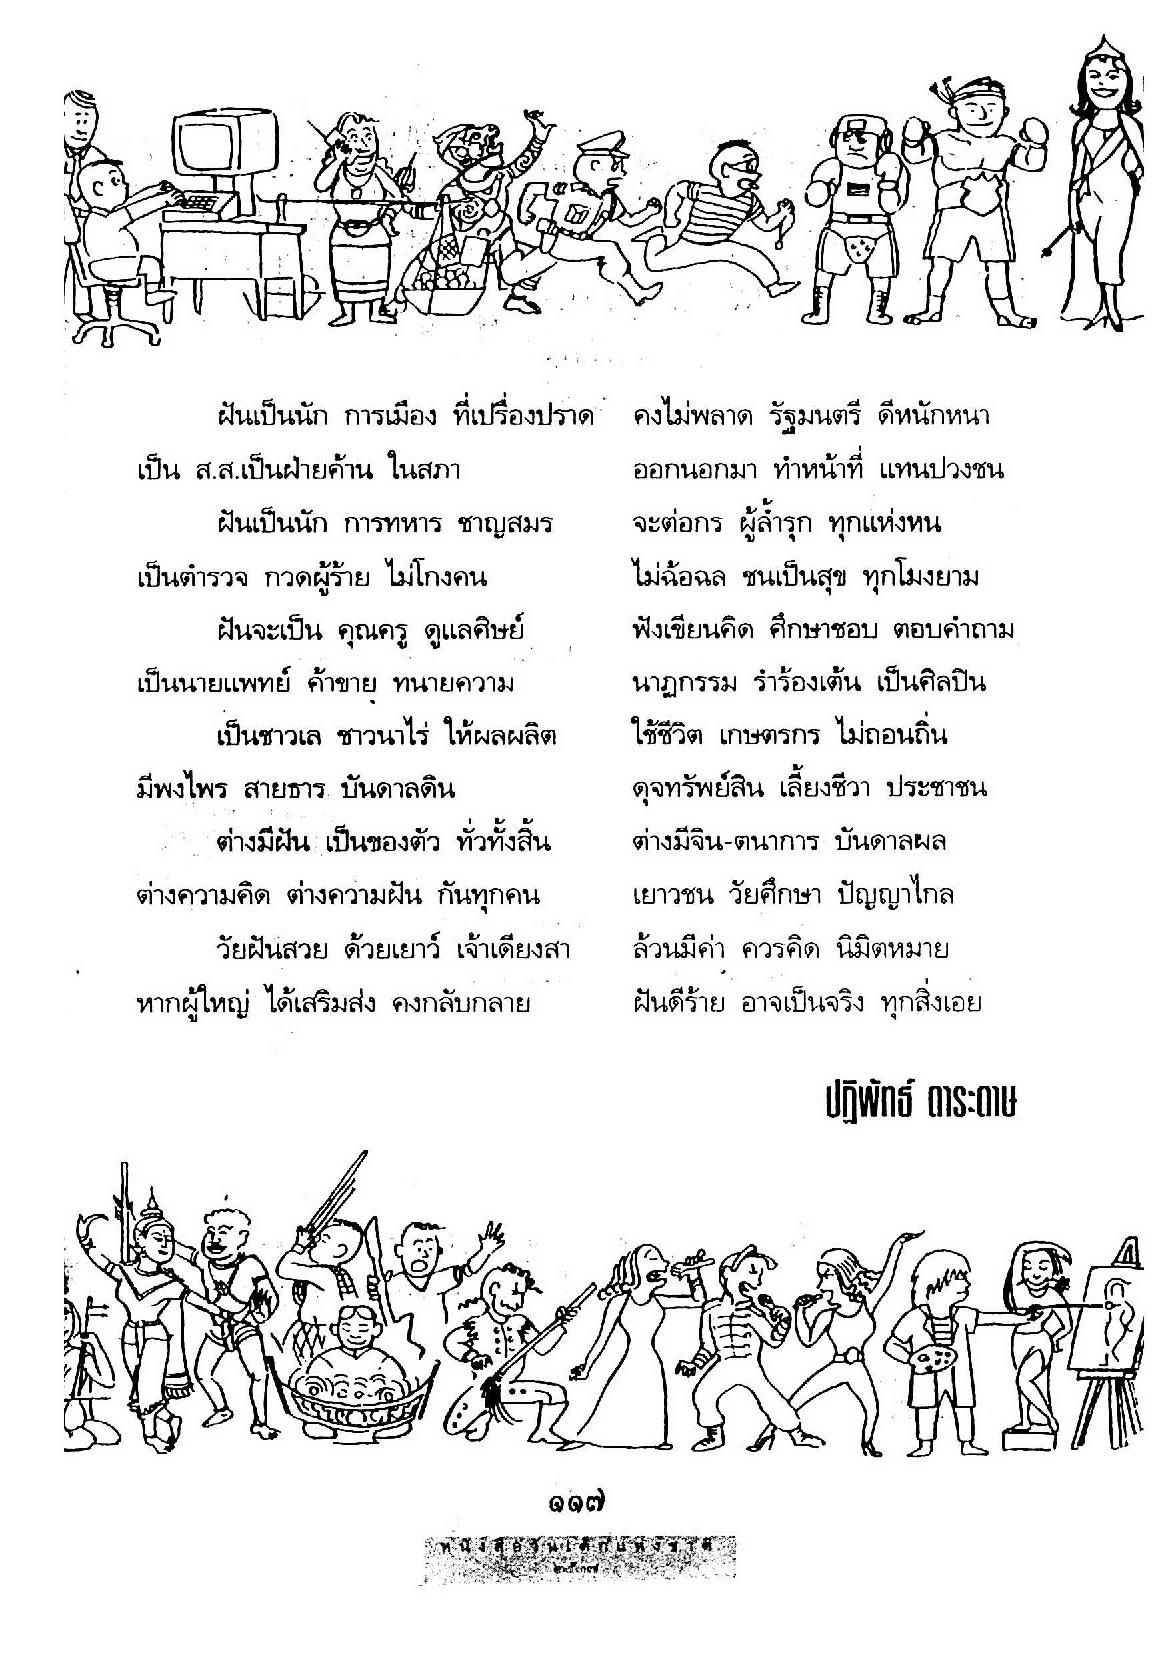 ฝันเป็นนัก การเมือง ที่เปรื่องปราด คงไม่พลาด รัฐมนตรี ดีหนักหนา
เป็น ส.ส.เป็นฝ่ายค้าน ในสภา ออกนอกมา ทำหน้าที่ แทนปวงชน
ฝันเป็นนัก การทหาร ชาญสมร จะต่อกร ผู้ล้ำรุก ทุกแห่งหน
เป็นตำรวจ กวดผู้ร้าย ไม่โกงคน ไม่ฉ้อฉล ชนเป็นสุข ทุกโมงยาม
ฝันจะเป็น คุณครู ดูแลศิษย์ ฟังเขียนคิด ศึกษาชอบ ตอบคำถาม
เป็นนายแพทย์ ค้าขาย ทนายความ นาฏกรรม รำร้องเต้น เป็นศิลปิน
เป็นชาวเล ชาวนาไร่ ให้ผลผลิต ใช้ชีวิต เกษตรกร ไม่ถอนถิ่น
มีพงไพร สายธาร บันดาลดิน ดุจทรัพย์สิน เลี้ยงชีวา ประชาชน
ต่างมีฝัน เป็นของตัว ทั่วทั้งสิ้น ต่างมีจิน-ตนาการ บันดาลผล
ต่างความคิด ต่างความฝัน กันทุกคน เยาวชน วัยศึกษา ปัญญาไกล
วัยฝันสวย ด้วยเยาว์ เจ้าเดียงสา ล้วนมีค่า ควรคิด นิมิตหมาย
หากผู้ใหญ่ ได้เสริมส่ง คงกลับกลาย ฝันดีร้าย อาจเป็นจริง ทุกสิ่งเอย
ปฏิพัทธ์ ดาระดาษ
๑๑๗
หนังสือวันเด็กแห่งชาติ
๒๕๓๗